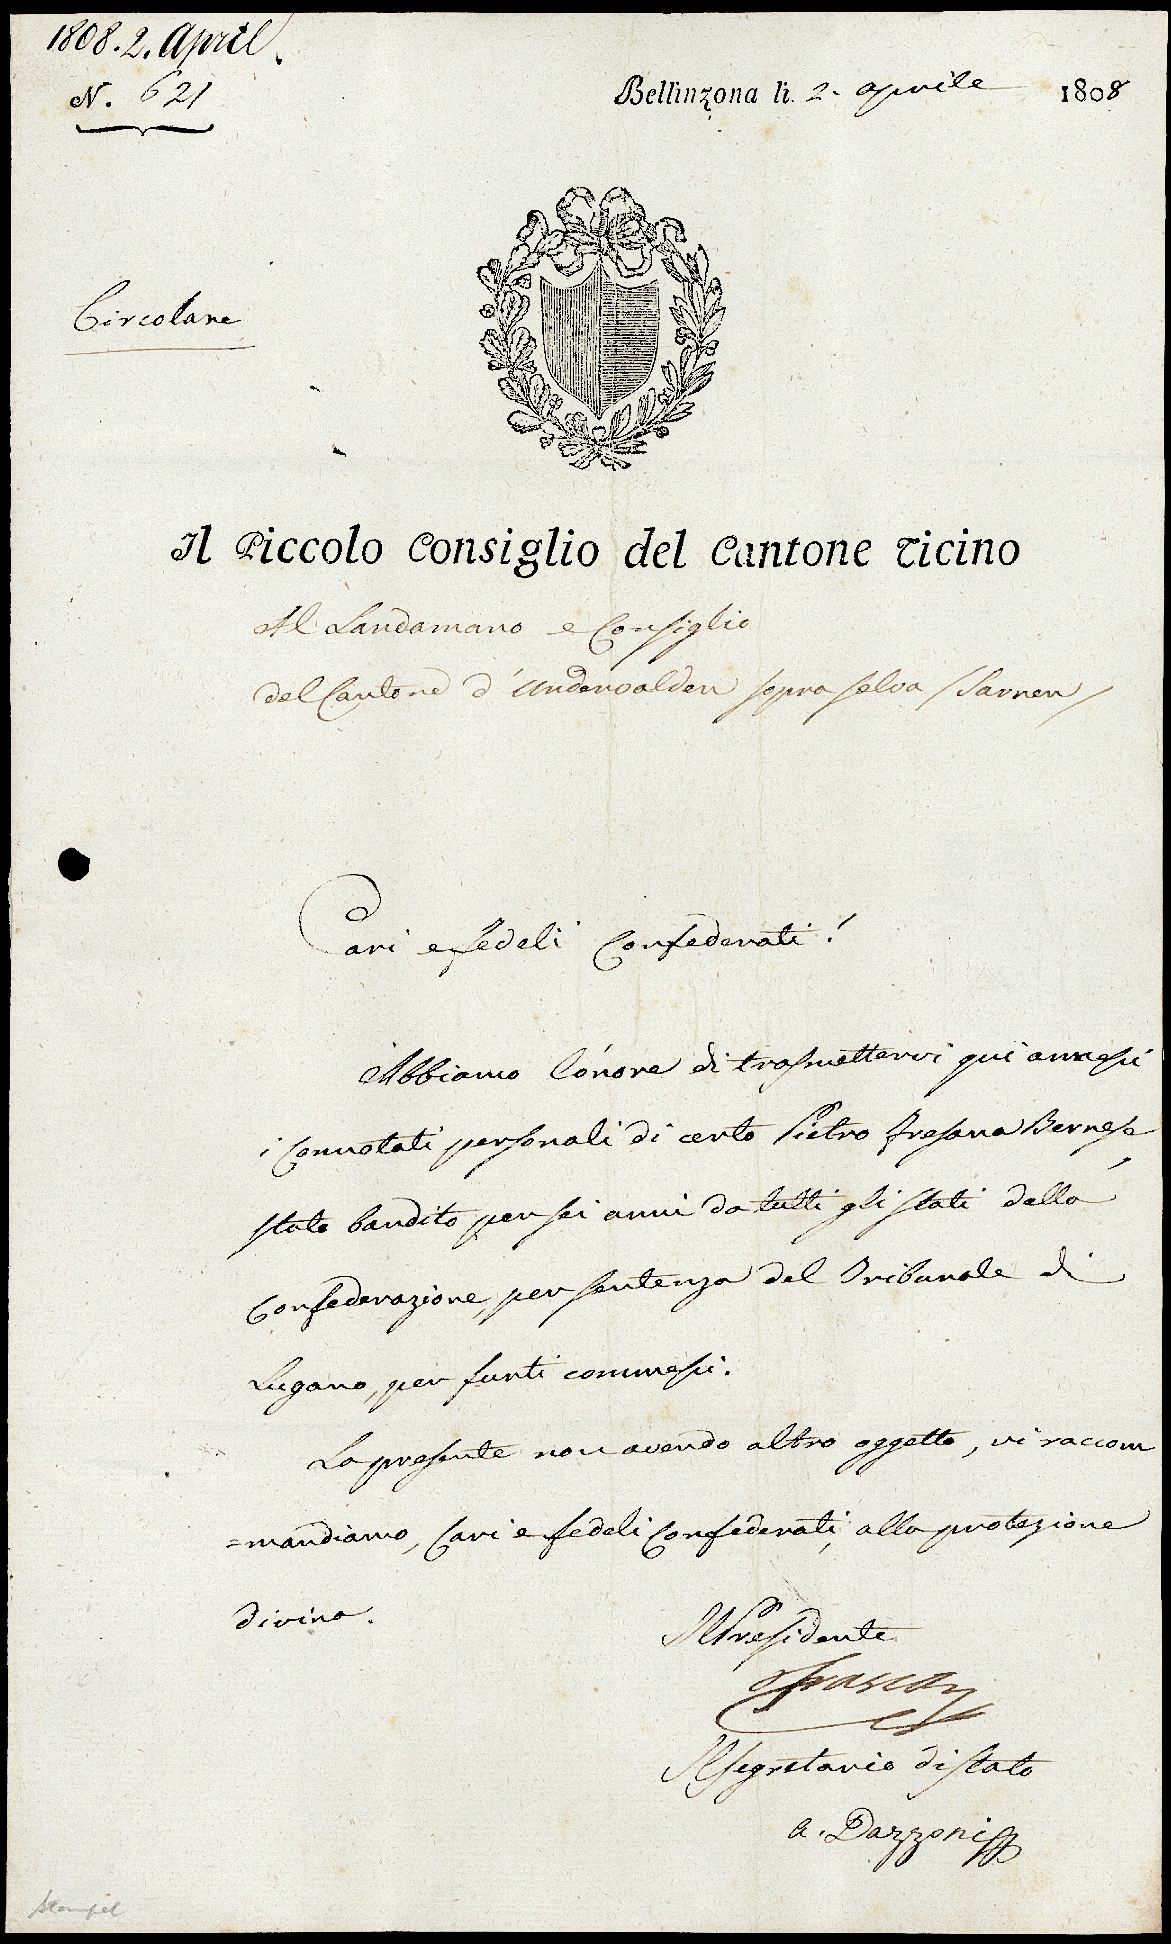 1808. 2. April.
N. 621
Bellinzona li. 2. aprile 1808
Circolare
Il Piccolo Consiglio del Cantone Ticino
Al Landamano e Consiglio
del Cantone d'Undervalden sopra selva /Sarnen/
Cari e fedeli Confederati!
Abbiamo l'onore di trasmettervi qui annessi
i connotati personali di certo Pietro Fresana Bernese,
stato bandito per sei anni da tutti gli stati della
Confederazione, per sentenza del Tribunale di
Lugano, per furti commessi.
La presente non avendo altro oggetto, vi raccom
=mandiamo, Cari e fedeli Confederati, alla protezione
divina.
Il Presidente
Il Segretario di Stato
a. Dazzoni
Stempel